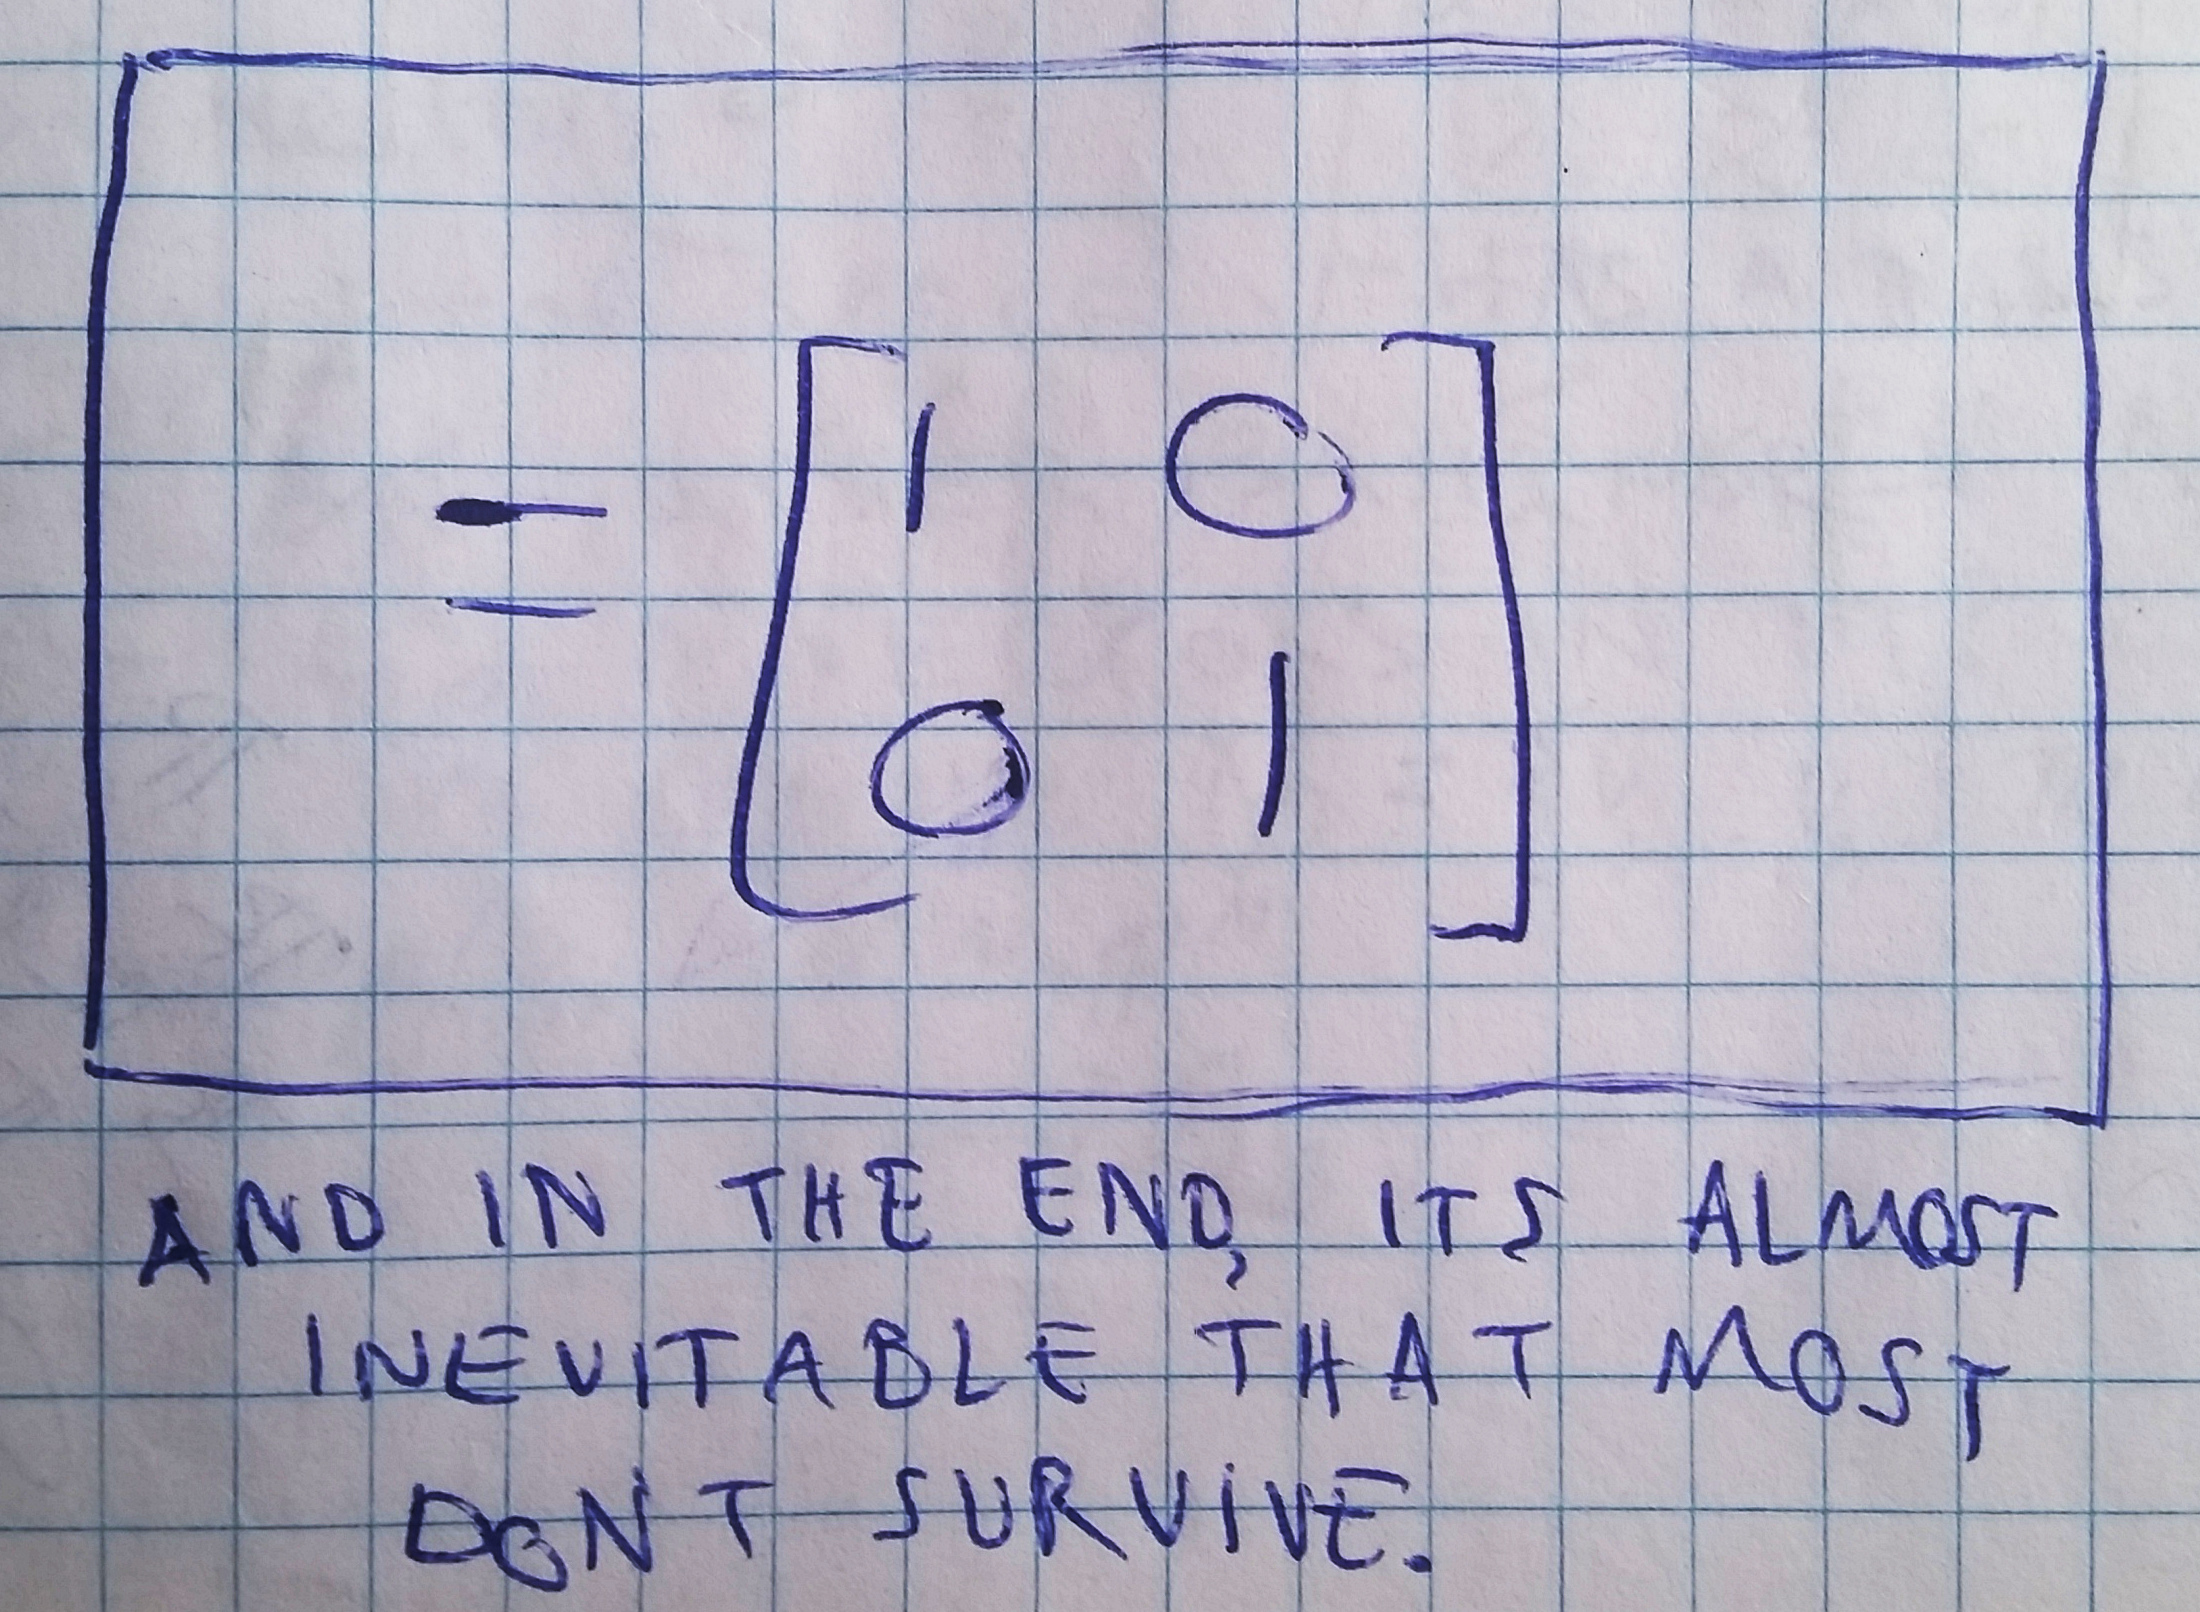 = [1 0
0 1]
AND IN THE END, ITS ALMOST
INEVITABLE THAT MOST
DONT SURVIVE.